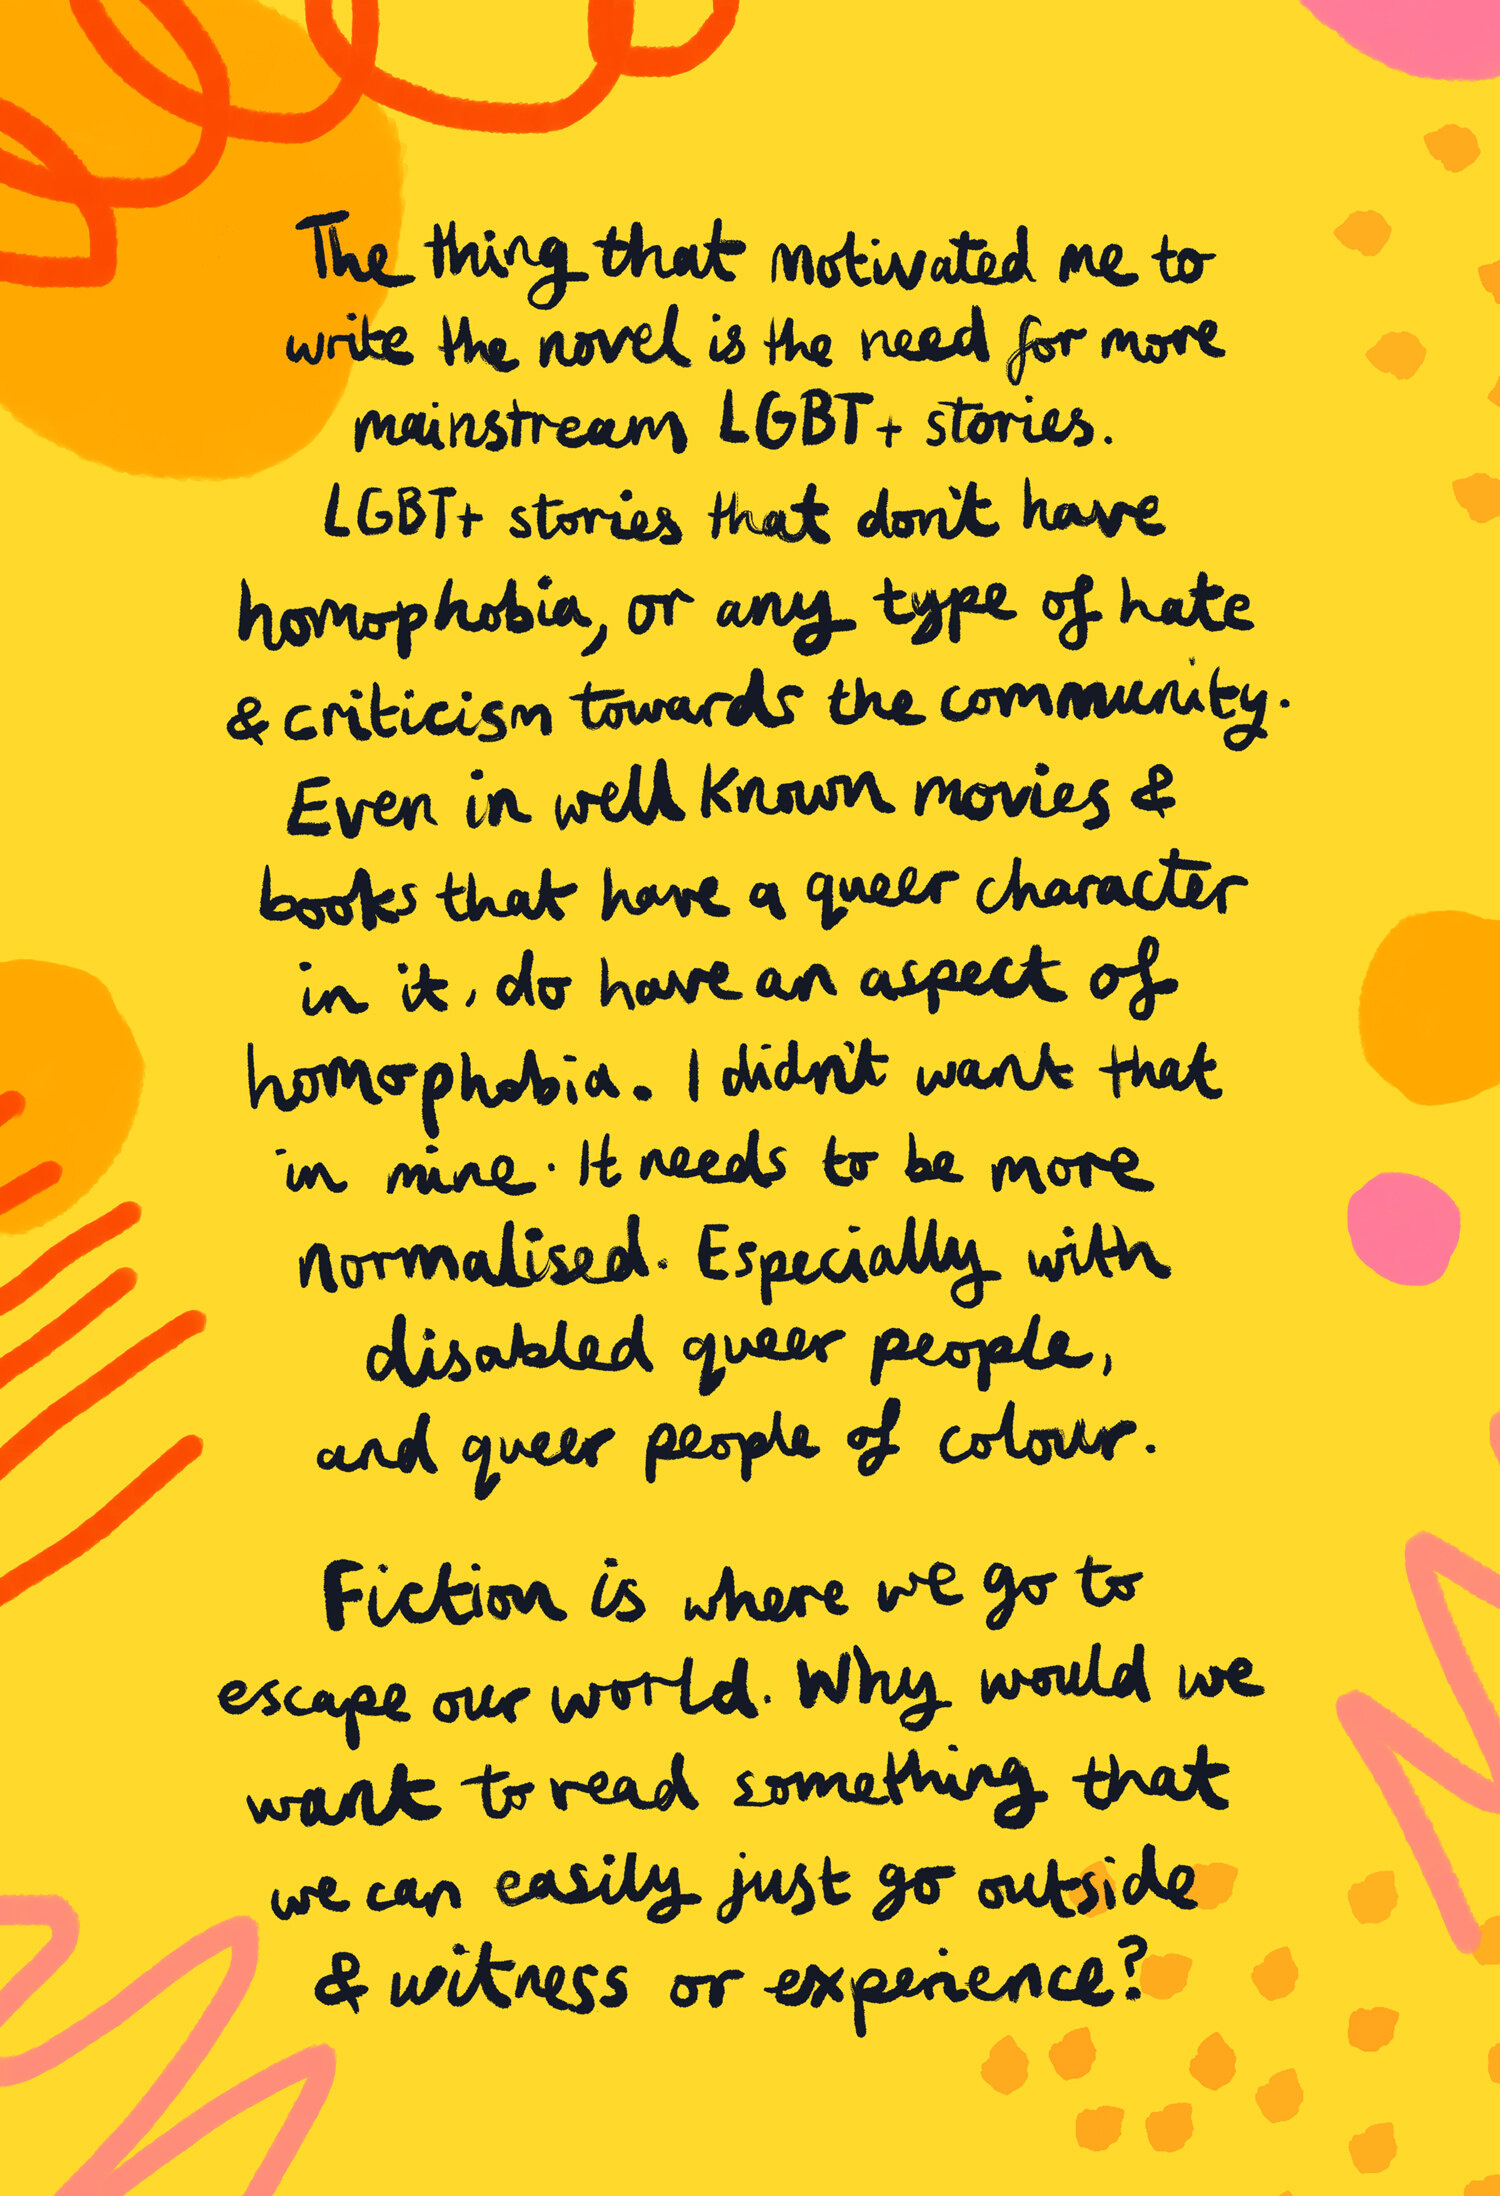 The thing that motivated me to
write the novel is the need for more
mainstream LGBT+ stories.
LGBT+ stories that don't have
homophobia, or any type of hate
& criticism towards the community.
Even in well known movies &
books that have a queer character
in it, do have an aspect of
homophobia. I didn't want that
in mine. It needs to be more
normalised. Especially with
disabled queer people,
and queer people of colour.
Fiction is where we go to
escape our world. Why would we
want to read something that
we can easily just go outside
& witness or experience?